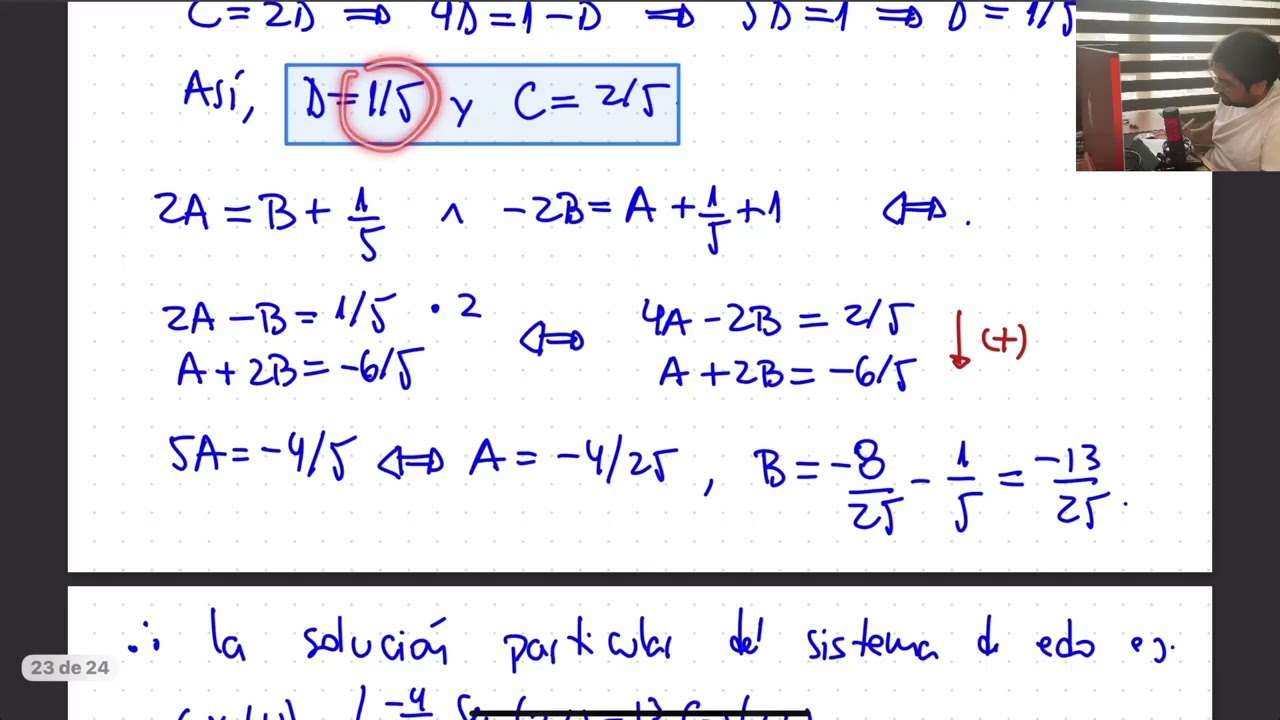 C = 2D ⟹ 4D = 1 - D ⟹ 5D = 1 ⟹ D = 1/5
Así, D = 1/5 y C = 2/5.
2A = B + 1/5 ∧ -2B = A + 1/5 + 1 ⟺ .
2A - B = 1/5 · 2 ⟺ 4A - 2B = 2/5 ↓ (+)
A + 2B = -6/5 A + 2B = -6/5
5A = -4/5 ⟺ A = -4/25 , B = -8/25 - 1/5 = -13/25 .
∴ la solución particular del sistema de edo es.
23 de 24